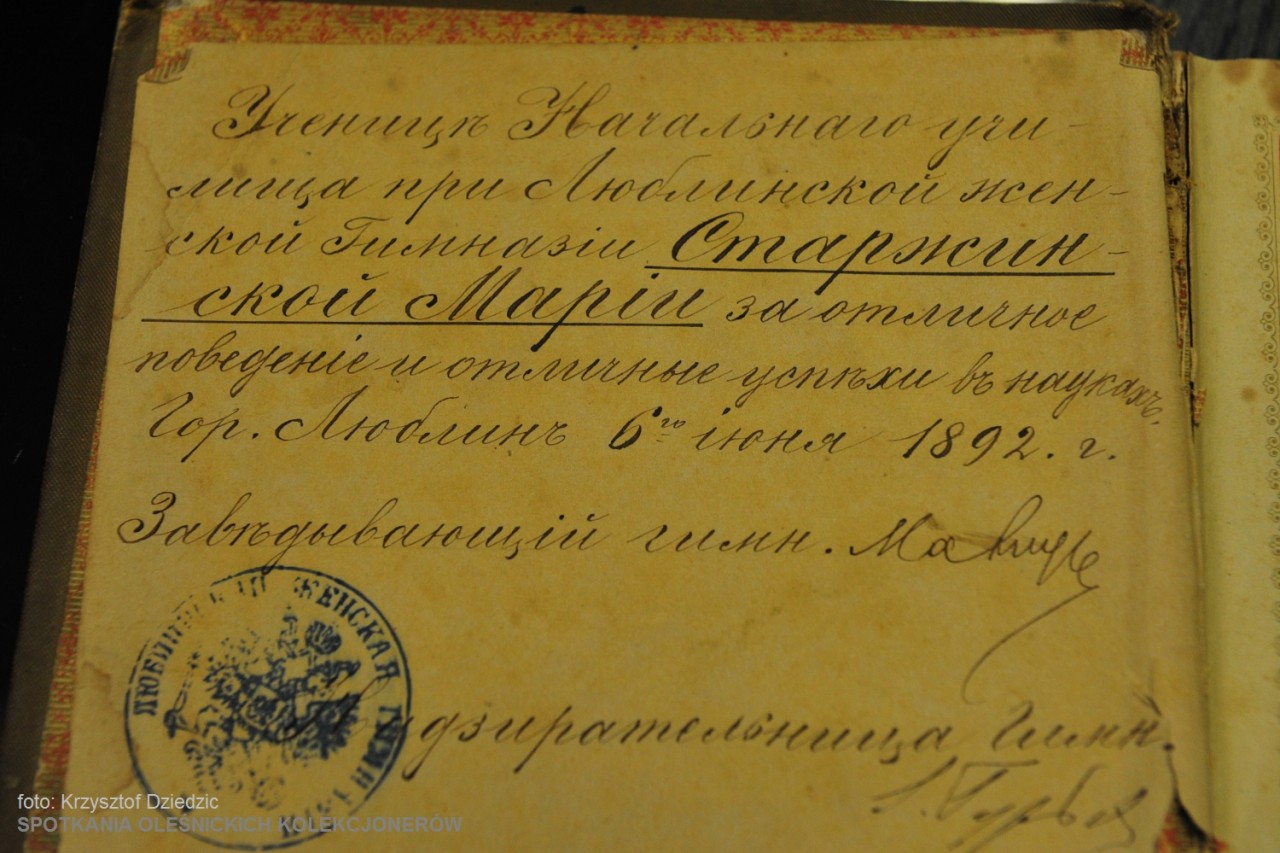 Ученицѣ Начальнаго учи-
лища при Люблинской жен-
ской Гимназіи Старжин-
ской Маріи за отличное
поведеніе и отличные успѣхи въ наукахъ.
Гор. Люблинъ 6го іюня 1892. г.
Завѣдывающій гимн.
ЛЮБЛИНСКАЯ ЖЕНСКАЯ ГИМНАЗІЯ
Надзирательница Гимн.
foto: Krzysztof Dziedzic
SPOTKANIA OLEŚNICKICH KOLEKCJONERÓW